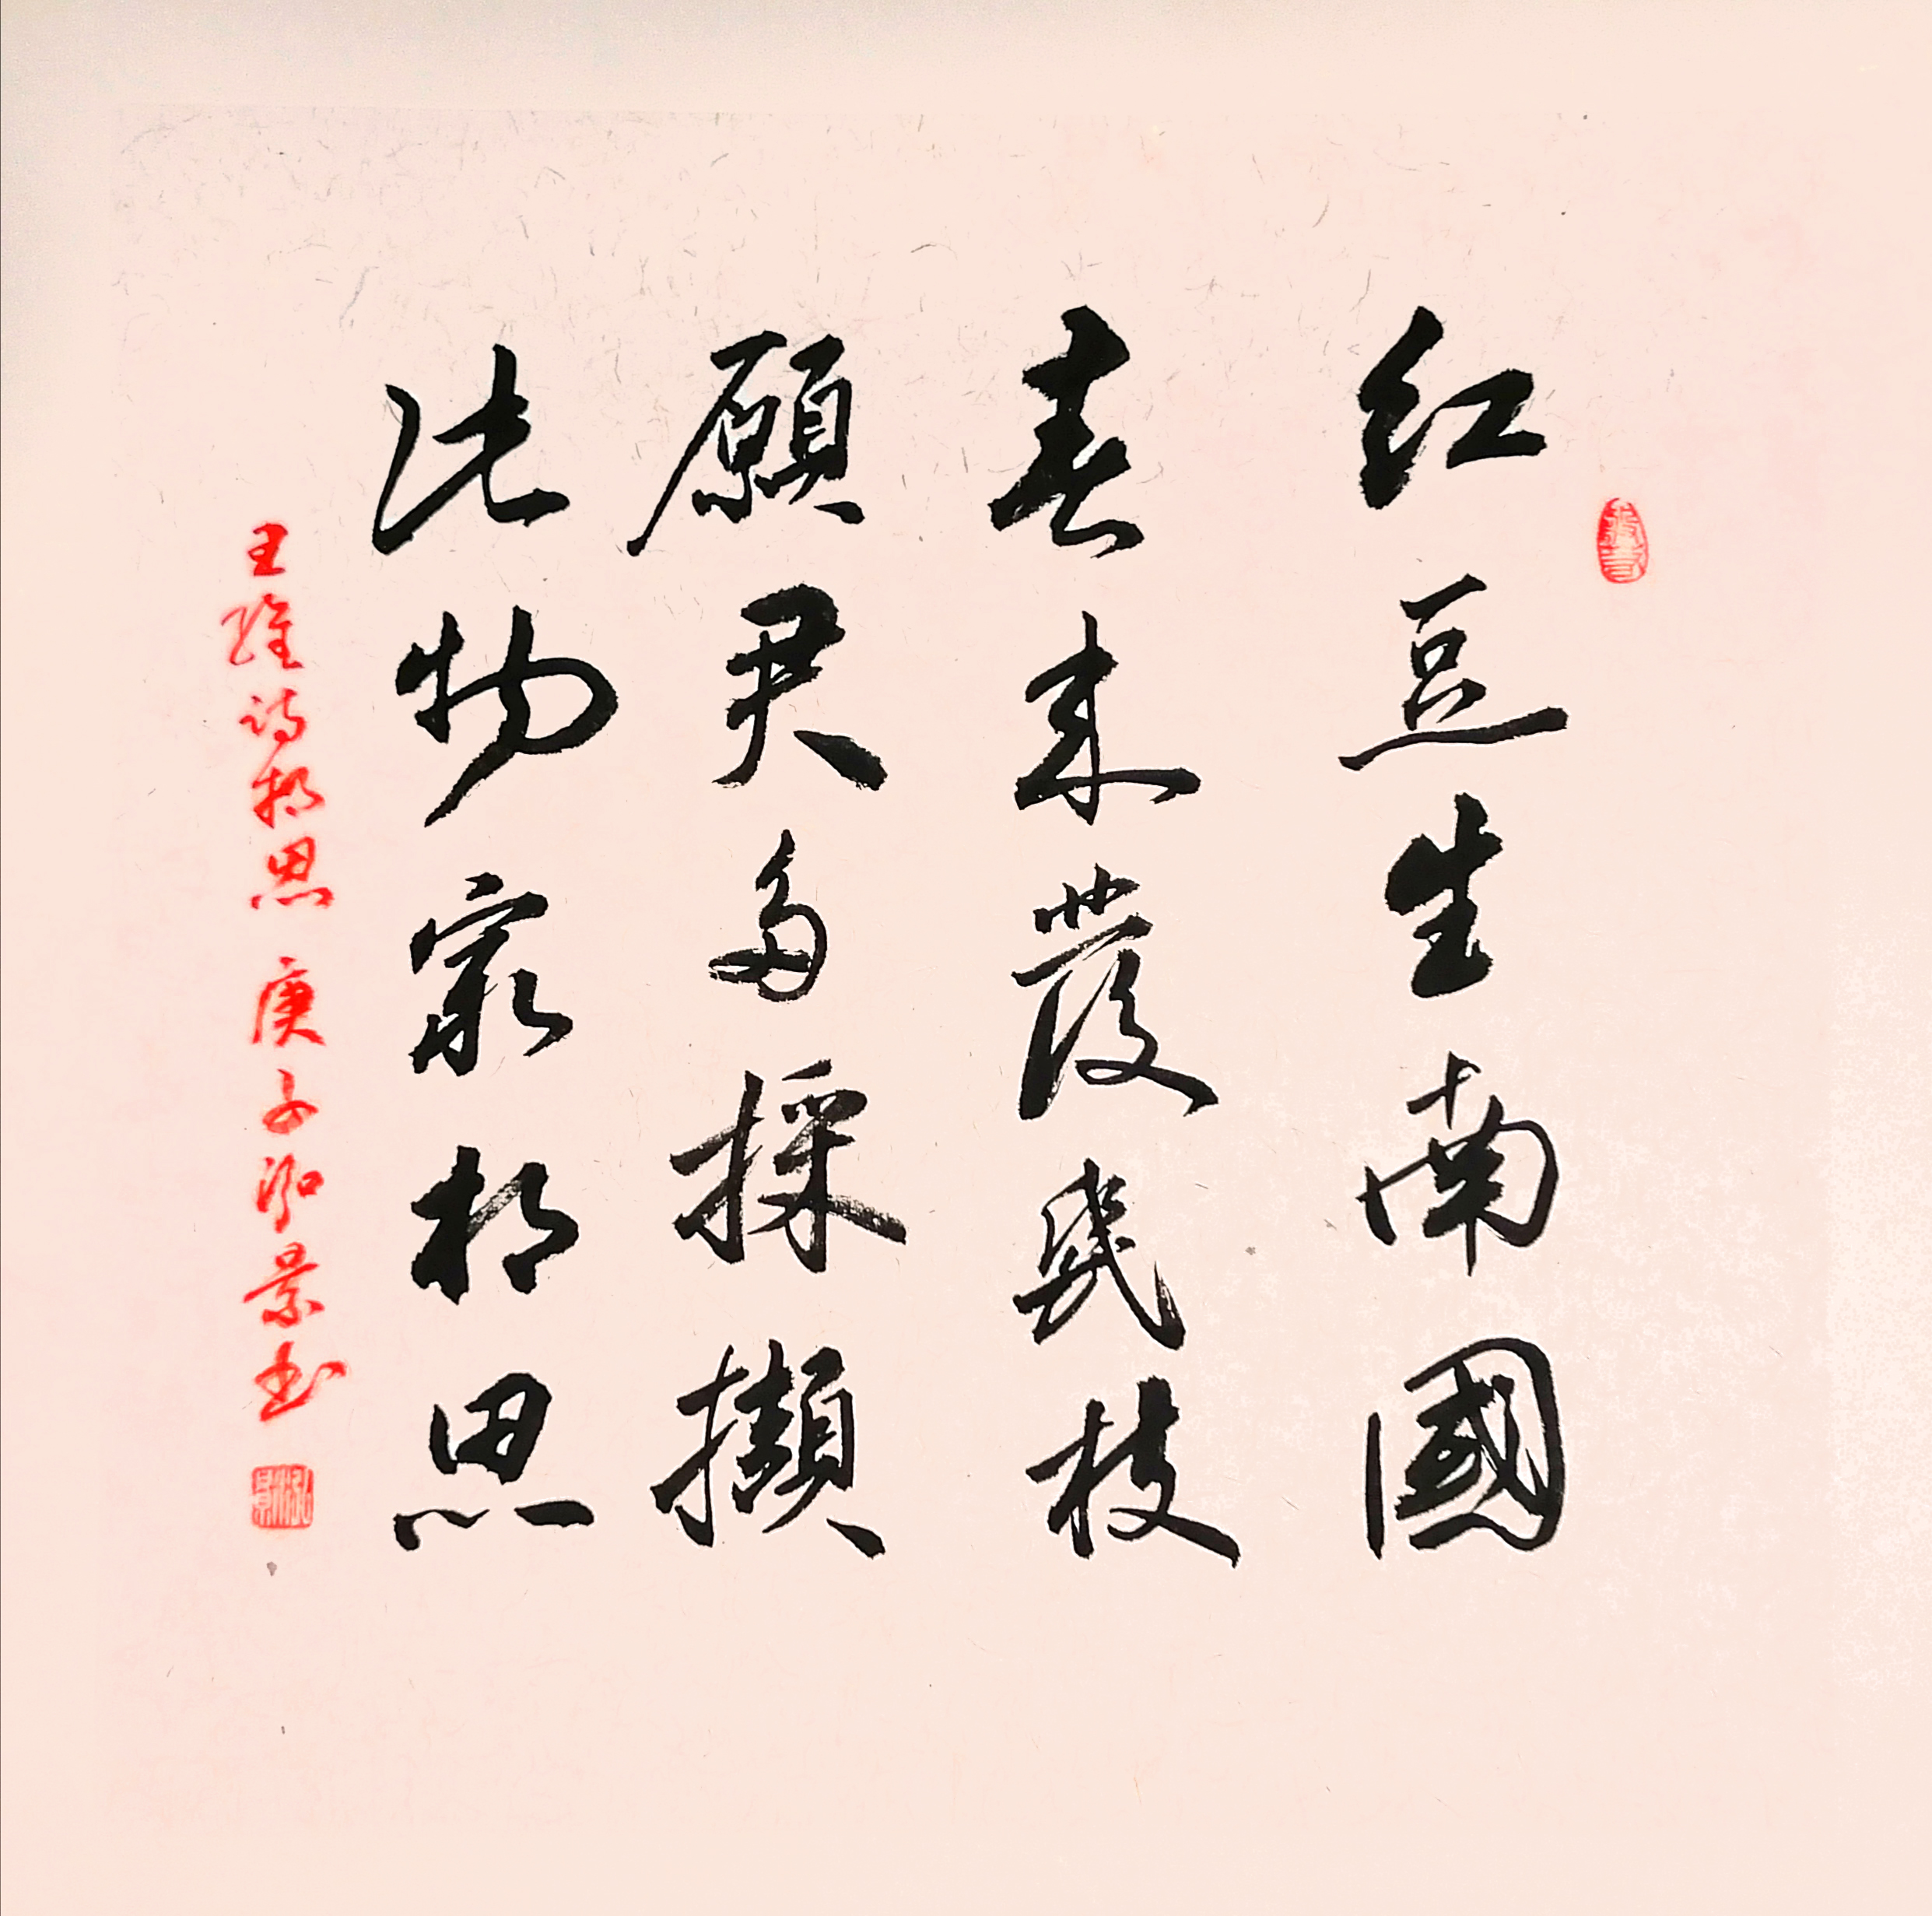 红豆生南國
春来發幾枝
願君多採擷
此物最相思
王維诗相思 庚子泓景书